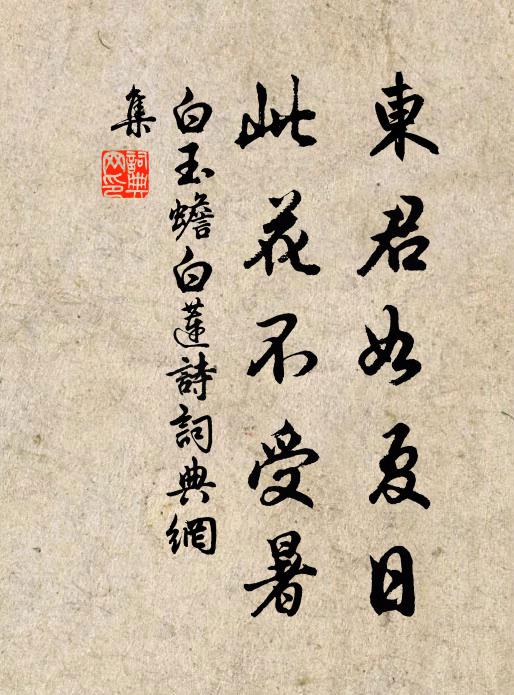 東君如夏日
此花不受暑
白玉蟾白蓮詩詞典網
集
詞典网印